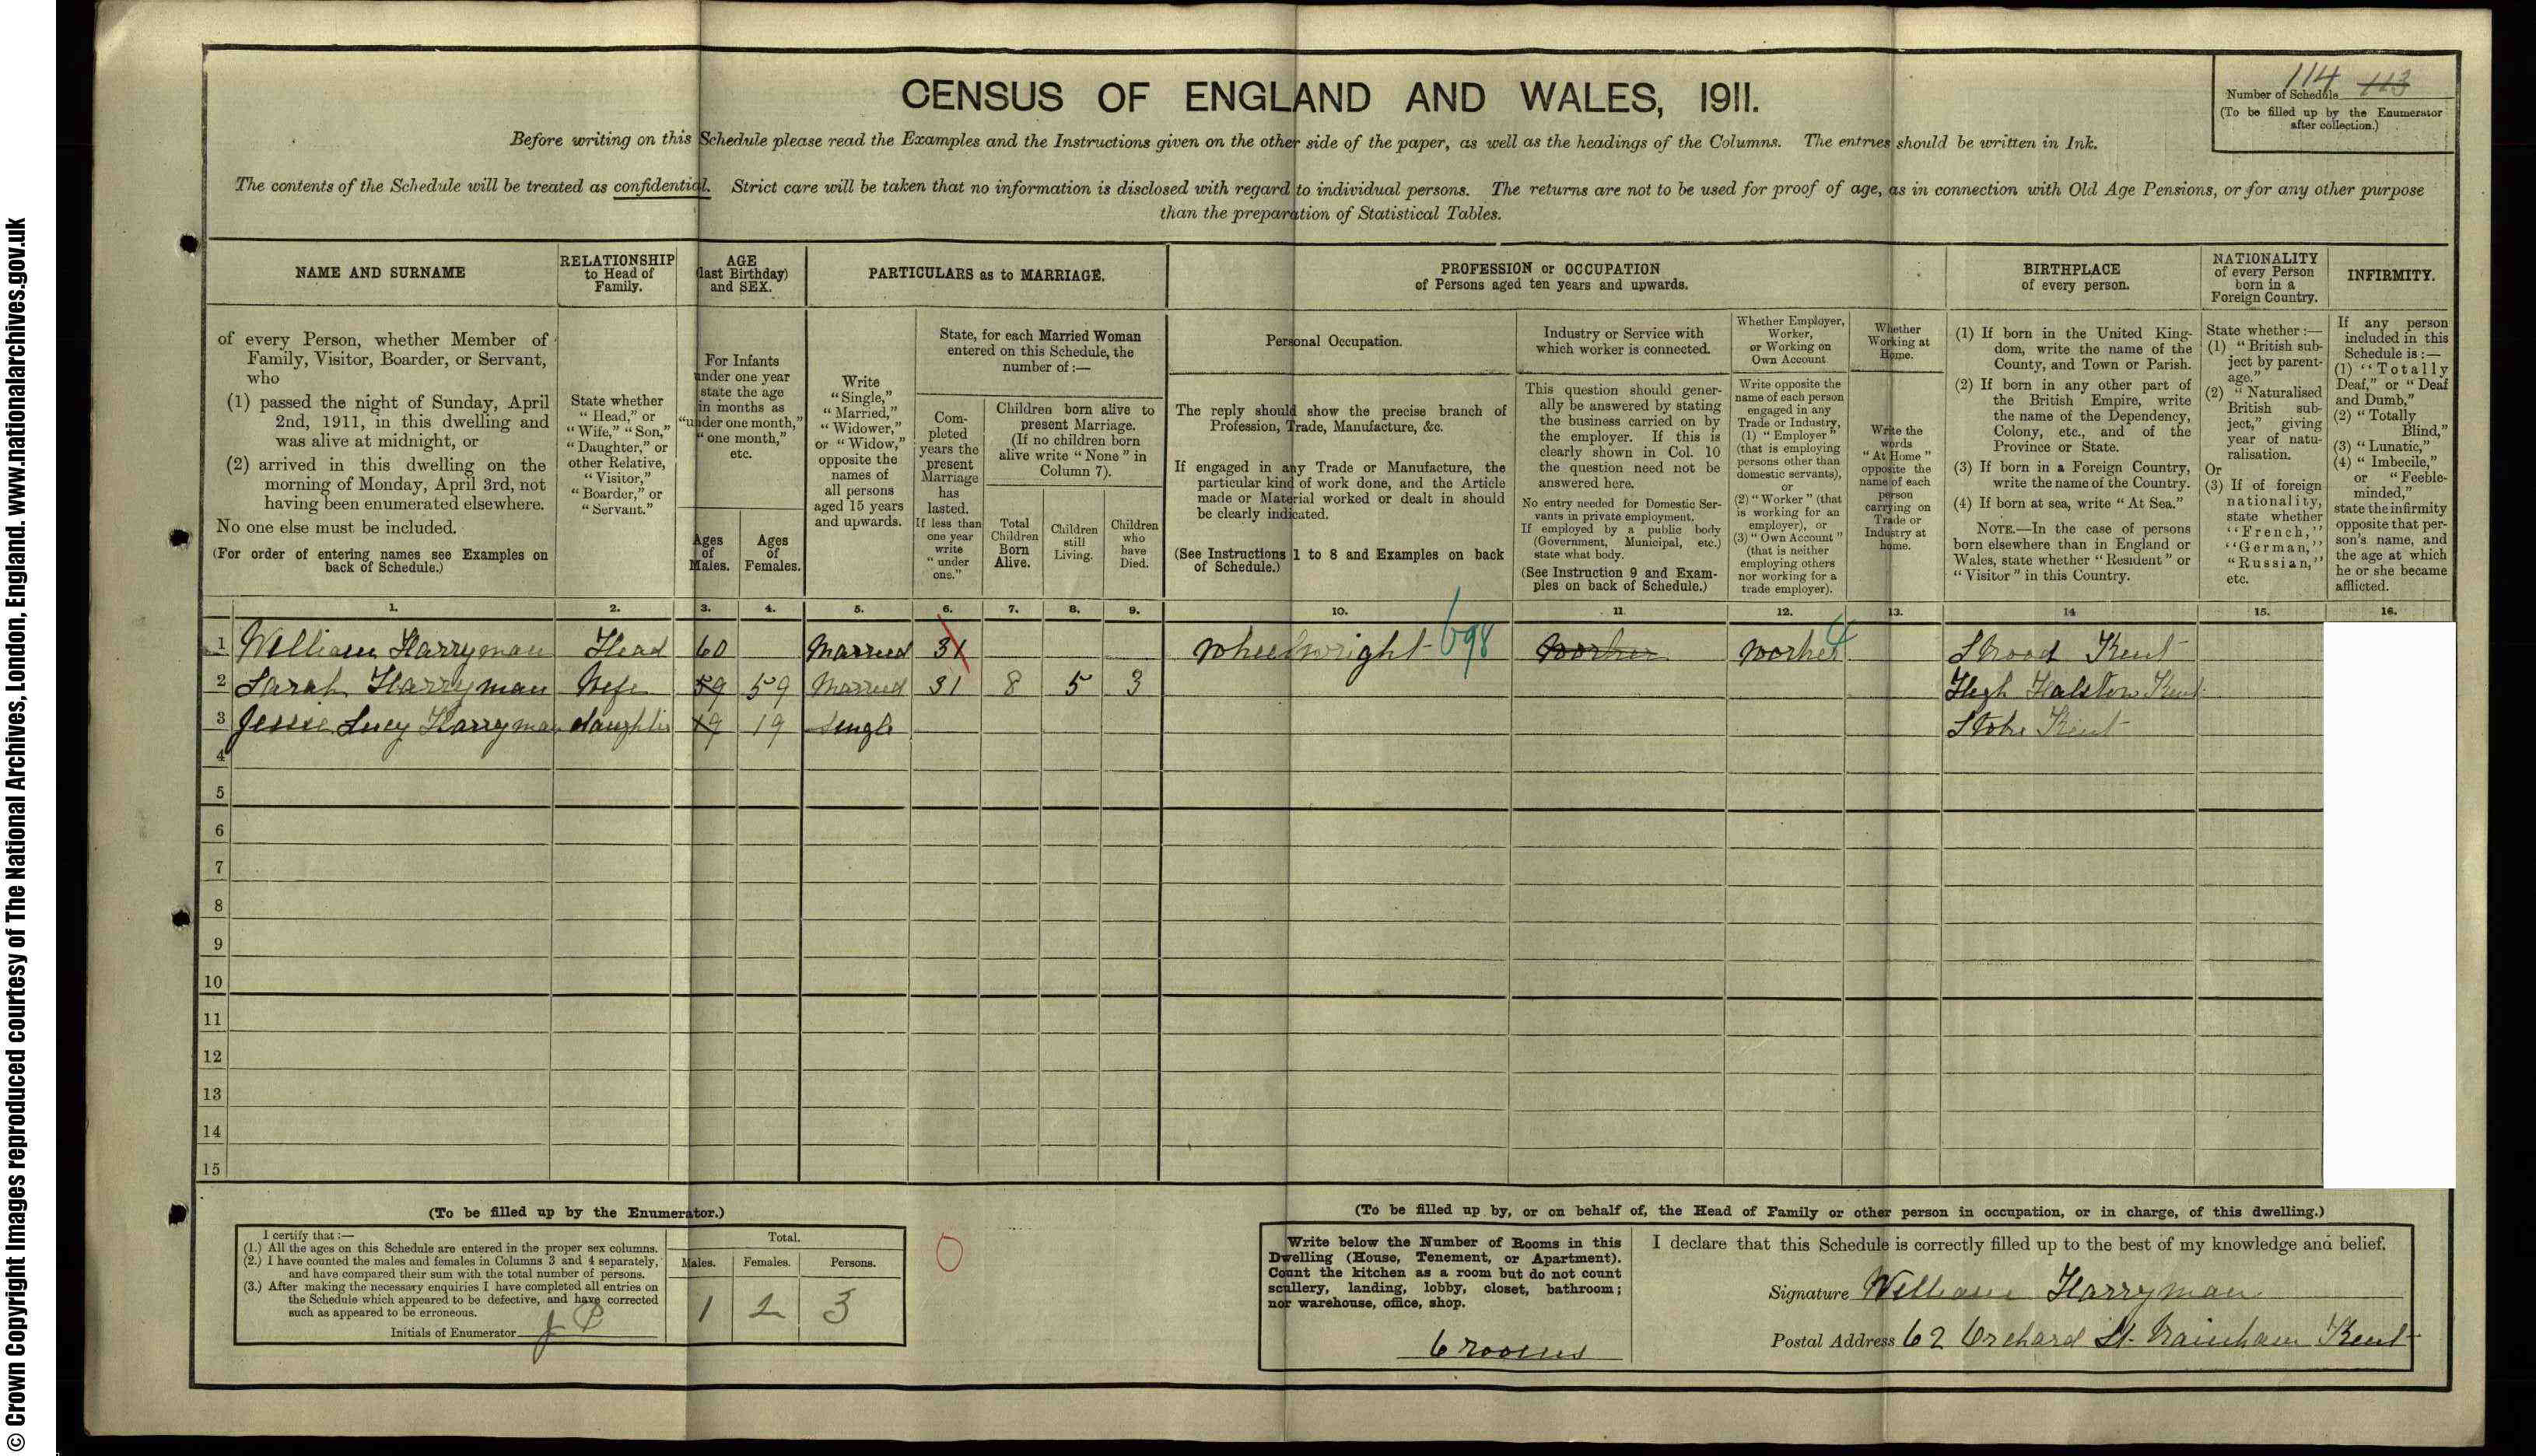 © Crown Copyright Images reproduced courtesy of The National Archives, London, England. www.nationalarchives.gov.uk
CENSUS OF ENGLAND AND WALES, 1911.
114 113
Number of Schedule
(To be filled up by the Enumerator
after collection.)
Before writing on this Schedule please read the Examples and the Instructions given on the other side of the paper, as well as the headings of the Columns. The entries should be written in Ink.
The contents of the Schedule will be treated as confidential. Strict care will be taken that no information is disclosed with regard to individual persons. The returns are not to be used for proof of age, as in connection with Old Age Pensions, or for any other purpose
than the preparation of Statistical Tables.
NAME AND SURNAME
of every Person, whether Member of
Family, Visitor, Boarder, or Servant,
who
(1) passed the night of Sunday, April
2nd, 1911, in this dwelling and
was alive at midnight, or
(2) arrived in this dwelling on the
morning of Monday, April 3rd, not
having been enumerated elsewhere.
No one else must be included.
(For order of entering names see Examples on
back of Schedule.)
RELATIONSHIP
to Head of
Family.
State whether
"Head," or
"Wife," "Son,"
"Daughter," or
other Relative,
"Visitor,"
"Boarder," or
"Servant."
AGE
(last Birthday)
and SEX.
For Infants
under one year
state the age
in months as
"under one month,"
"one month,"
etc.
Ages
of
Males.
Ages
of
Females.
PARTICULARS as to MARRIAGE.
Write
"Single,"
"Married,"
"Widower,"
or "Widow,"
opposite the
names of
all persons
aged 15 years
and upwards.
State, for each Married Woman
entered on this Schedule, the
number of :—
Com-
pleted
years the
present
Marriage
has
lasted.
If less than
one year
write
"under
one."
Children born alive to
present Marriage.
(If no children born
alive write "None" in
Column 7).
Total
Children
Born
Alive.
Children
still
Living.
Children
who
have
Died.
PROFESSION or OCCUPATION
of Persons aged ten years and upwards.
Personal Occupation.
The reply should show the precise branch of
Profession, Trade, Manufacture, &c.
If engaged in any Trade or Manufacture, the
particular kind of work done, and the Article
made or Material worked or dealt in should
be clearly indicated.
(See Instructions 1 to 8 and Examples on back
of Schedule.)
Industry or Service with
which worker is connected.
This question should gener-
ally be answered by stating
the business carried on by
the employer. If this is
clearly shown in Col. 10
the question need not be
answered here.
No entry needed for Domestic Ser-
vants in private employment.
If employed by a public body
(Government, Municipal, etc.)
state what body.
(See Instruction 9 and Exam-
ples on back of Schedule.)
Whether Employer,
Worker,
or Working on
Own Account.
Write opposite the
name of each person
engaged in any
Trade or Industry,
(1) "Employer"
(that is employing
persons other than
domestic servants),
or
(2) "Worker" (that
is working for an
employer), or
(3) "Own Account"
(that is neither
employing others
nor working for a
trade employer).
Whether
Working at
Home.
Write the
words
"At Home"
opposite the
name of each
person
carrying on
Trade or
Industry at
home.
BIRTHPLACE
of every person.
(1) If born in the United King-
dom, write the name of the
County, and Town or Parish.
(2) If born in any other part of
the British Empire, write
the name of the Dependency,
Colony, etc., and of the
Province or State.
(3) If born in a Foreign Country,
write the name of the Country.
(4) If born at sea, write "At Sea."
NOTE.—In the case of persons
born elsewhere than in England or
Wales, state whether "Resident" or
"Visitor" in this Country.
NATIONALITY
of every Person
born in a
Foreign Country.
State whether :—
(1) "British sub-
ject by parent-
age."
(2) "Naturalised
British sub-
ject," giving
year of natu-
ralisation.
Or
(3) If of foreign
nationality,
state whether
"French,"
"German,"
"Russian,"
etc.
INFIRMITY.
If any person
included in this
Schedule is :—
(1) "Totally
Deaf," or "Deaf
and Dumb,"
(2) "Totally
Blind,"
(3) "Lunatic,"
(4) "Imbecile,"
or "Feeble-
minded,"
state the infirmity
opposite that per-
son's name, and
the age at which
he or she became
afflicted.
1. 2. 3. 4. 5. 6. 7. 8. 9. 10. 11 12. 13. 14 15. 16.
1 William Harryman Head 60 Married 31 Wheelwright 698 worker worker Strood Kent
2 Sarah Harryman Wife 59 59 Married 31 8 5 3 High Halstow Kent
3 Jessie Lucy Harryman daughter 19 19 Single Stoke Kent
4
5
6
7
8
9
10
11
12
13
14
15
(To be filled up by the Enumerator.)
I certify that :—
(1.) All the ages on this Schedule are entered in the proper sex columns.
(2.) I have counted the males and females in Columns 3 and 4 separately,
and have compared their sum with the total number of persons.
(3.) After making the necessary enquiries I have completed all entries on
the Schedule which appeared to be defective, and have corrected
such as appeared to be erroneous.
Initials of Enumerator
Total.
Males. Females. Persons.
1 2 3
0
(To be filled up by, or on behalf of, the Head of Family or other person in occupation, or in charge, of this dwelling.)
Write below the Number of Rooms in this
Dwelling (House, Tenement, or Apartment).
Count the kitchen as a room but do not count
scullery, landing, lobby, closet, bathroom;
nor warehouse, office, shop.
6 rooms
I declare that this Schedule is correctly filled up to the best of my knowledge and belief.
Signature William Harryman
Postal Address 62 Orchard St. Rainham Kent